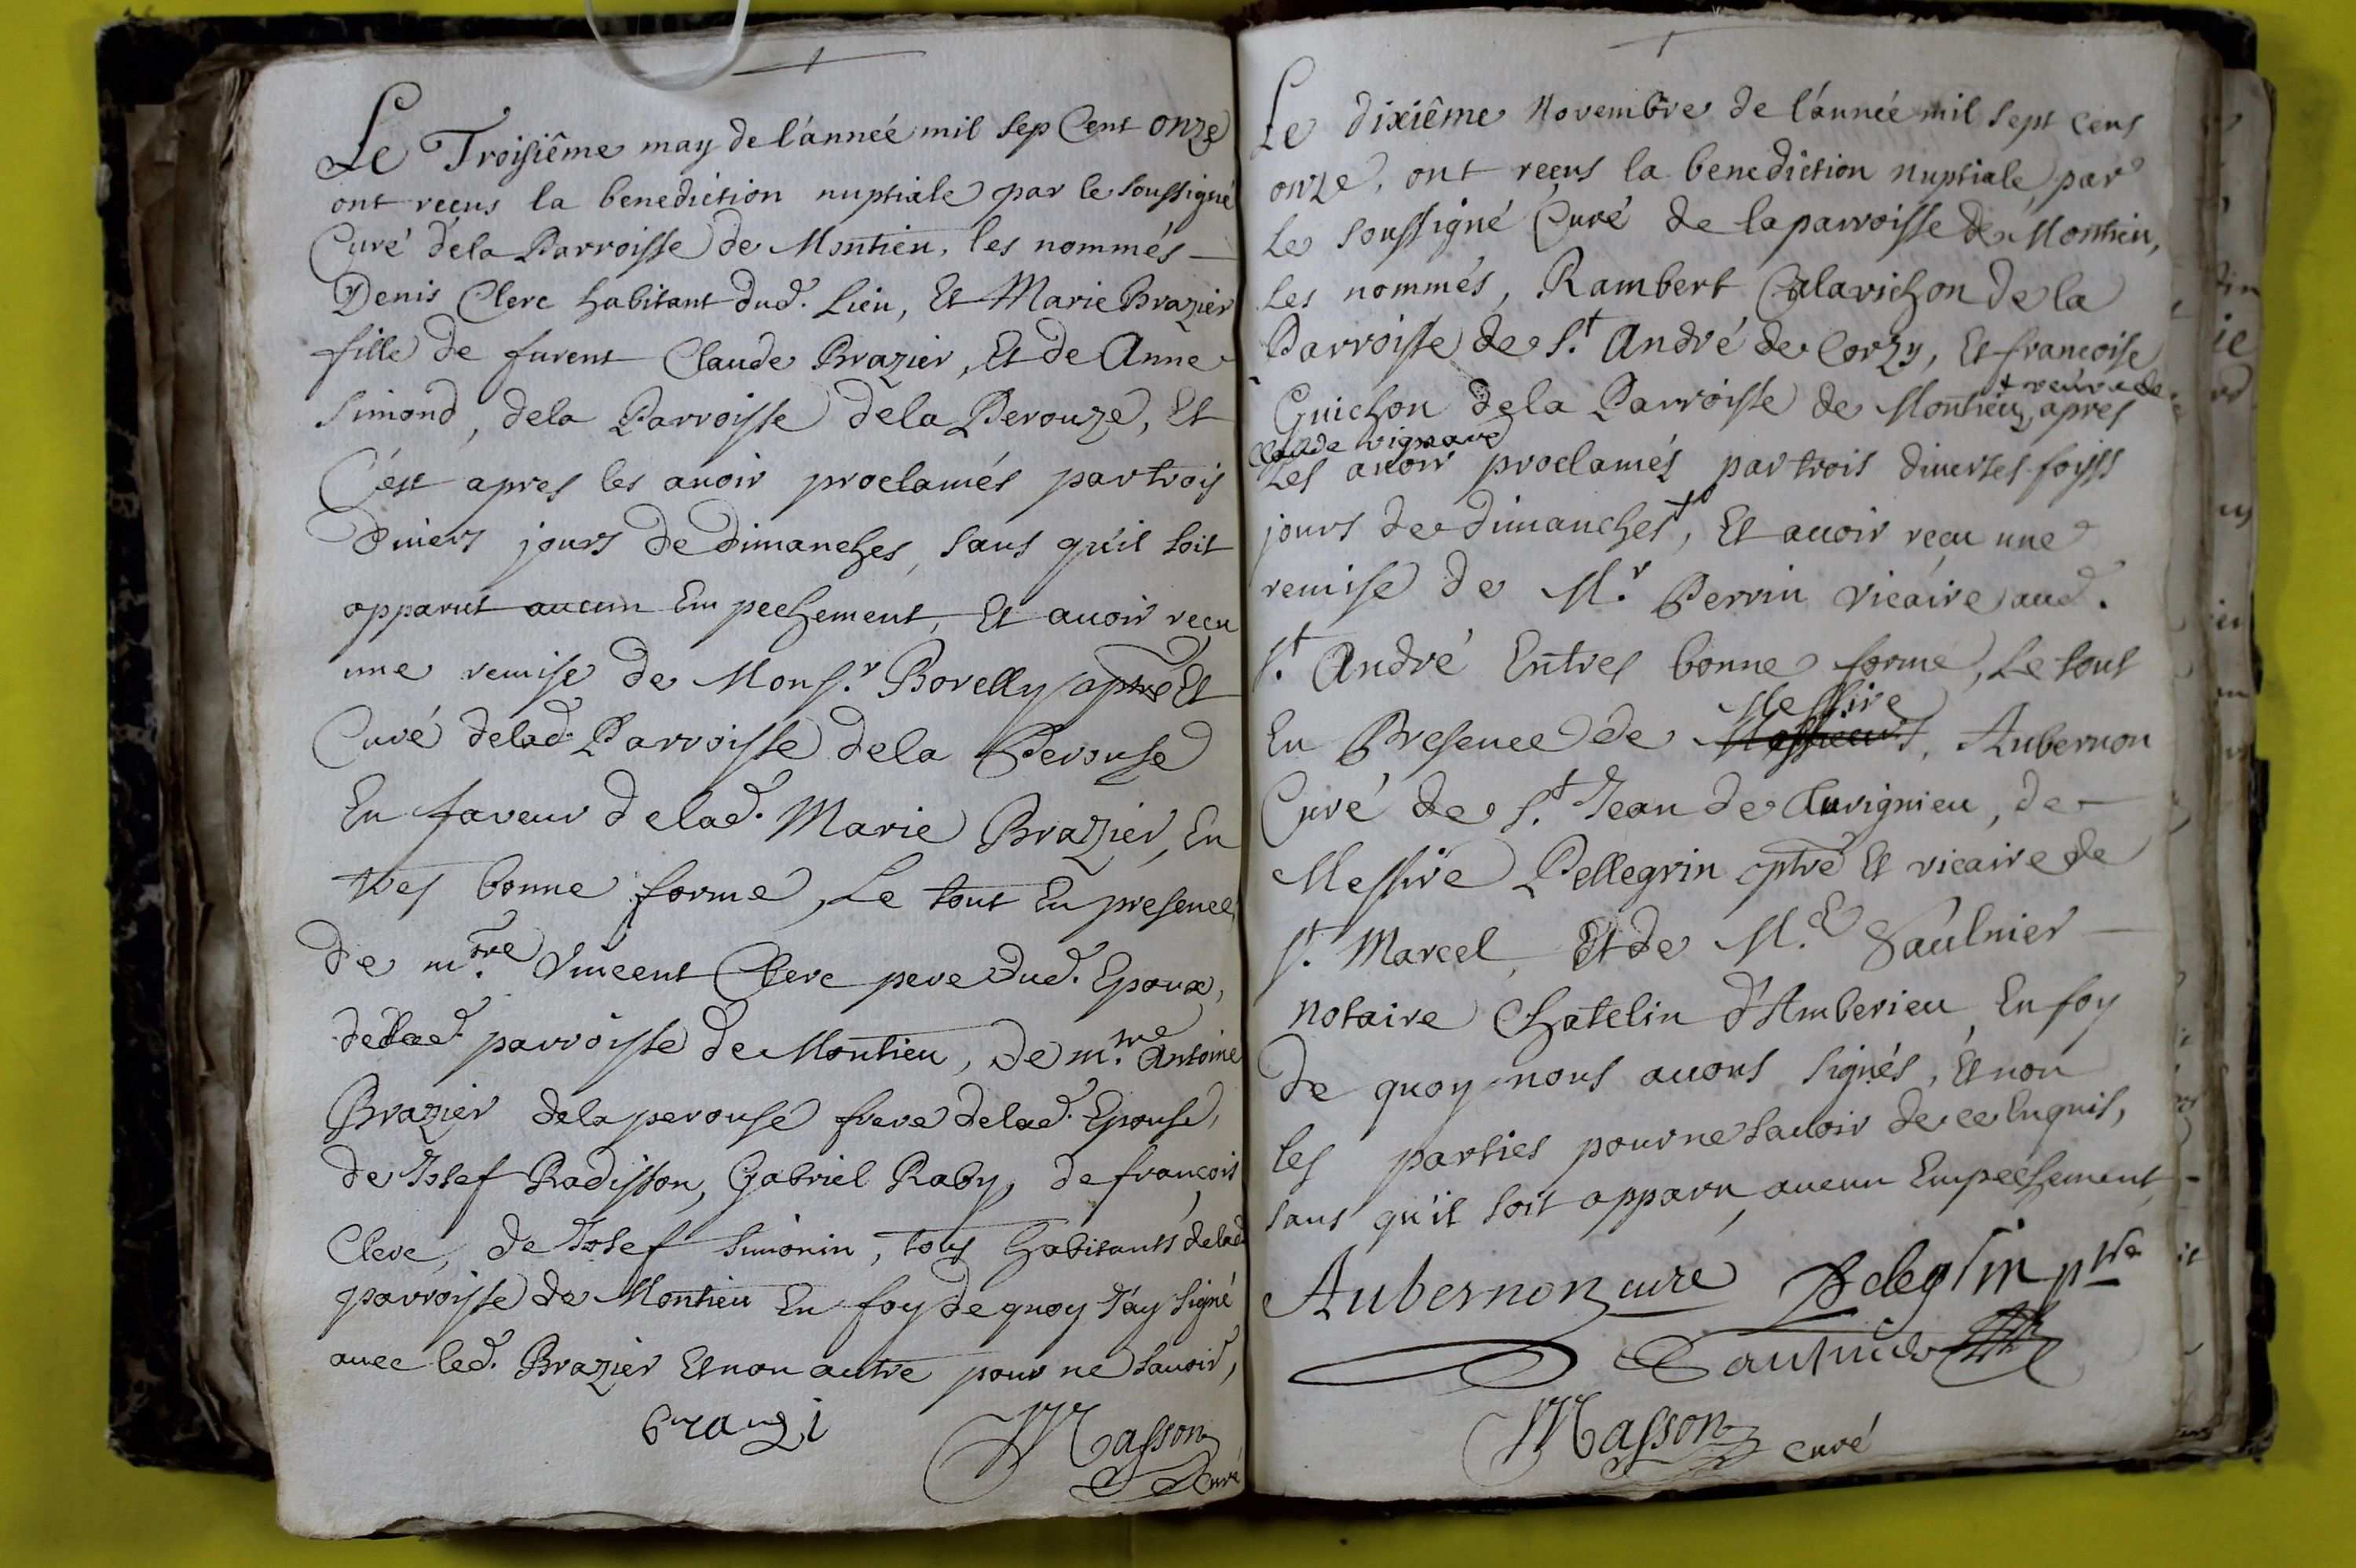 Le Troisiême may de l'anneé mil sep Cent onze
ont reçus la benediction nuptiale par le soussigné
Curé dela Parroisse de Montieu, les nommés
Denis Clerc habitant dud. Lieu, Et Marie Brazier
fille de furent Claude Brazier, Et de Anne
Simond, dela Parroisse dela Perouze, Et
C'est apres les auoir proclamés par trois
diuers jours de dimanches, sans qu'il soit
apparut aucun Empechement, Et auoir recu
une remise de Monsr. Borelly ptre Et
Curé delad. Parroisse dela Perouse
En faveur delad. Marie Brazier, En
tres bonne forme, Le tout En presence
de mre. Vincent Clerc pere dud. Epoux,
delad. parroisse de Montieu, de mre. Antoine
Brazier dela perouse frere delad. Epouse,
de Josef Radisson, Gabriel Raby, de francois
Clerc, de Josef Simonin, tous habitants delad
parroisse de Montieu En foy de quoy J'ay signé
auec led. Brazier Et non autre pour ne sauoir,
brazi Masson
Curé
Le dixiême Novembre de l'année mil sept cens
onze, ont reçus la benediction nuptiale par
Le soussigné Curé de la parroisse de Montieu,
Les nommés, Rambert Calarichon de la
Parroisse de St. André de Corzy, Et francoise
+ veuve de
Guichon dela Parroisse de Montieu, apres
Claude vignard
Les auoir proclamés par trois diuerses foiss
jours de dimanches+, Et auoir reçu une
remise de Mr. Perrin vicaire aud.
St. André En tres bonne forme, Le tout
Messire
En Presence de Messieurs, Aubernon
Curé de St. Jean de Turignieu, de
Messire Pellegrin ptre Et vicaire de
St. Marcel, Et de Me. Saulnier
notaire Chatelin d'Amberieu, En foy
de quoy nous auons signés, Et non
les parties pour ne sauoir de ce Enquis,
sans qu'il soit apparu aucun Empechement
Aubernon curé Pelegrin ptre
Saulnier
Masson curé